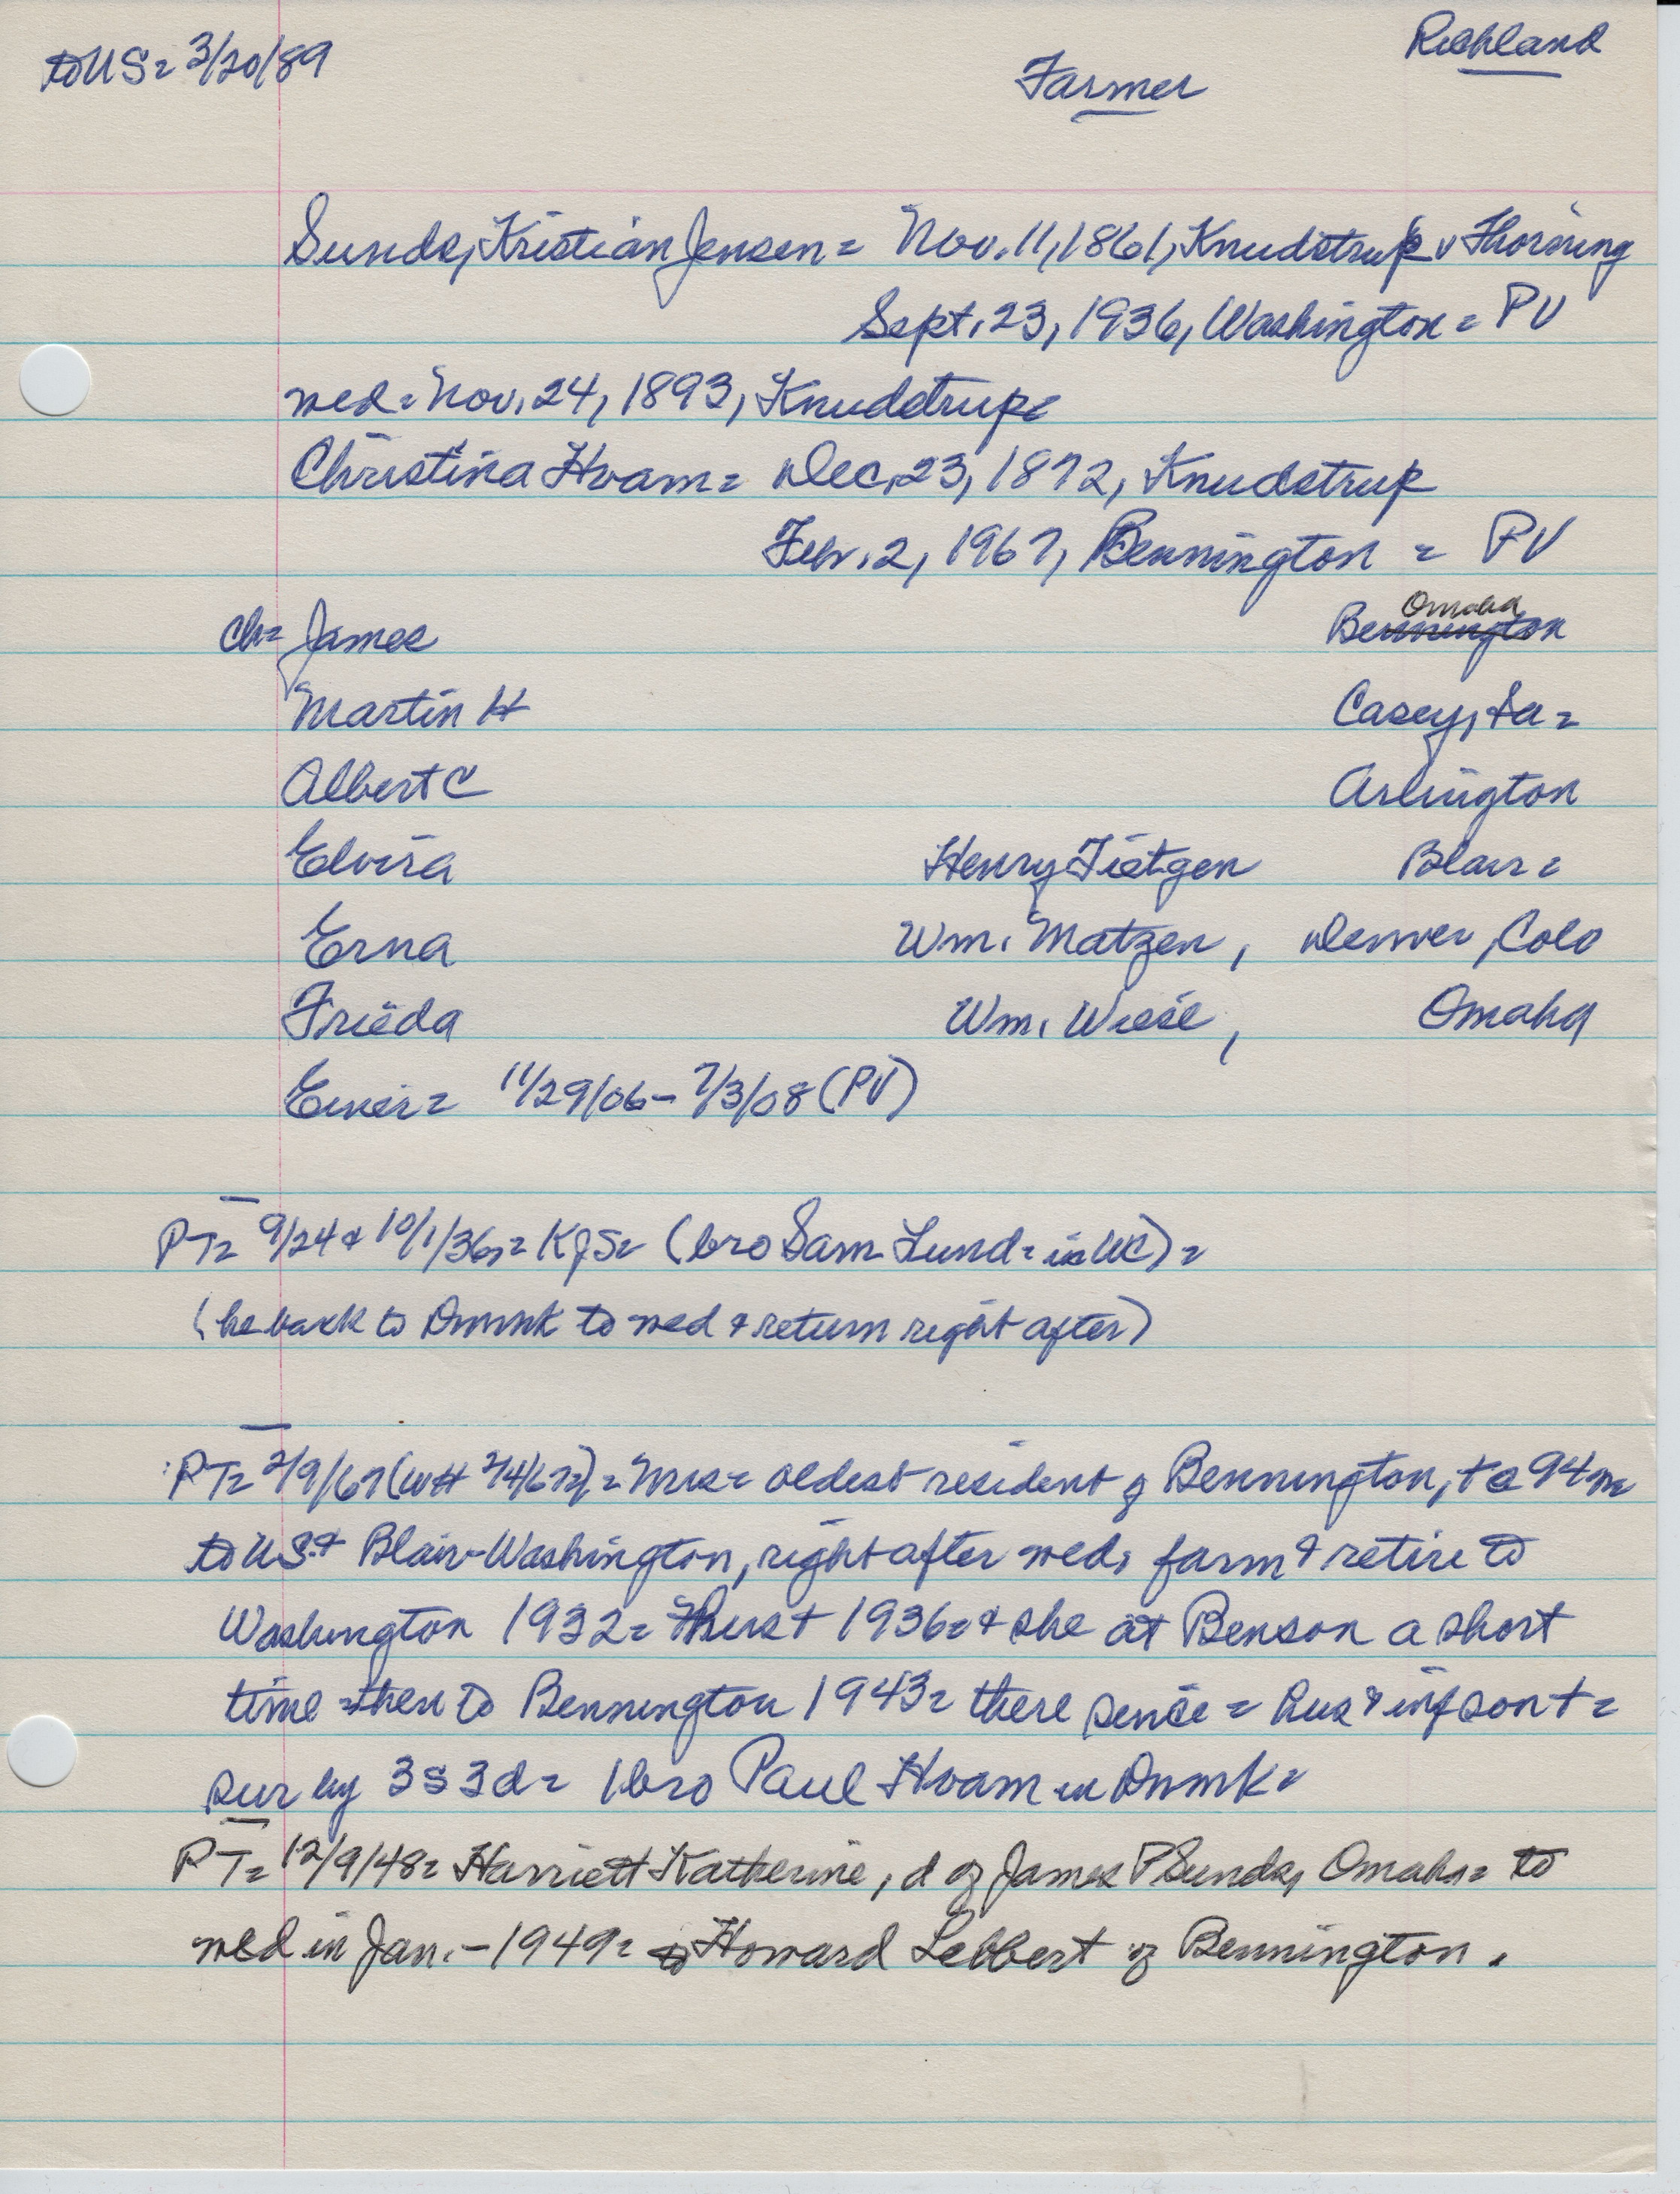 to US = 3/20/89
Richland
Farmer
Sunds, Kristian Jensen = Nov. 11, 1861, Knudstrup v Thorning
Sept. 23, 1936, Washington = PV
wed = Nov. 24, 1893, Knudstrup =
Christina Hvam = Dec. 23, 1872, Knudstrup
Febr. 2, 1967, Bennington = PV
Omaha
ch = James Bennington
Martin H Casey, Ia =
Albert C Arlington
Elvira Henry Tietgen Blair =
Erna Wm. Matzen, Denver, Colo
Frieda Wm. Wiese, Omaha
Einer = 11/29/06 - 7/3/08 (PV)
PT = 9/24 & 10/1/36 = KJS = (bro Sam Lund = in WC) =
(he back to Dnmk to wed & return right after)
PT = 2/9/67 (WH 2/4/67) = Mrs = oldest resident of Bennington, + @ 94 =
to US & Blair-Washington, right after wed, farm & retire to
Washington 1932 = Hus + 1936 = & she at Benson a short
time = then to Bennington 1943 = there sence = hus & inf son + =
sur by 3s 3d = 1 bro Paul Hvam in Dnmk =
PT = 12/9/48 = Harriett Katherine, d of James P Sunds, Omaha = to
wed in Jan. - 1949 = to Howard Lebbert of Bennington.